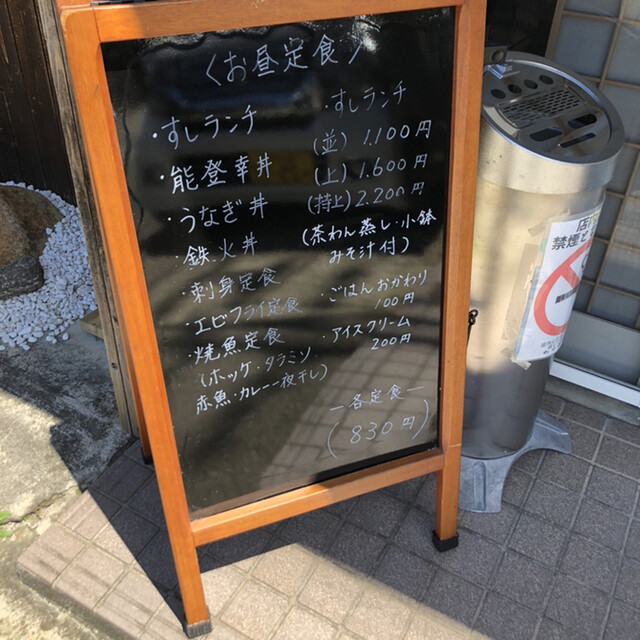 〈お昼定食〉
・すしランチ
・能登幸丼
・うなぎ丼
・鉄火丼
・刺身定食
・エビフライ定食
・焼魚定食
(ホッケ・タラミソ
赤魚・カレー一夜干し)
・すしランチ
(並) 1.100円
(上) 1.600円
(持上) 2.200円
(茶わん蒸し・小鉢
みそ汁付)
・ごはんおかわり
100円
・アイスクリーム
200円
ー各定食ー
(830円)
禁煙